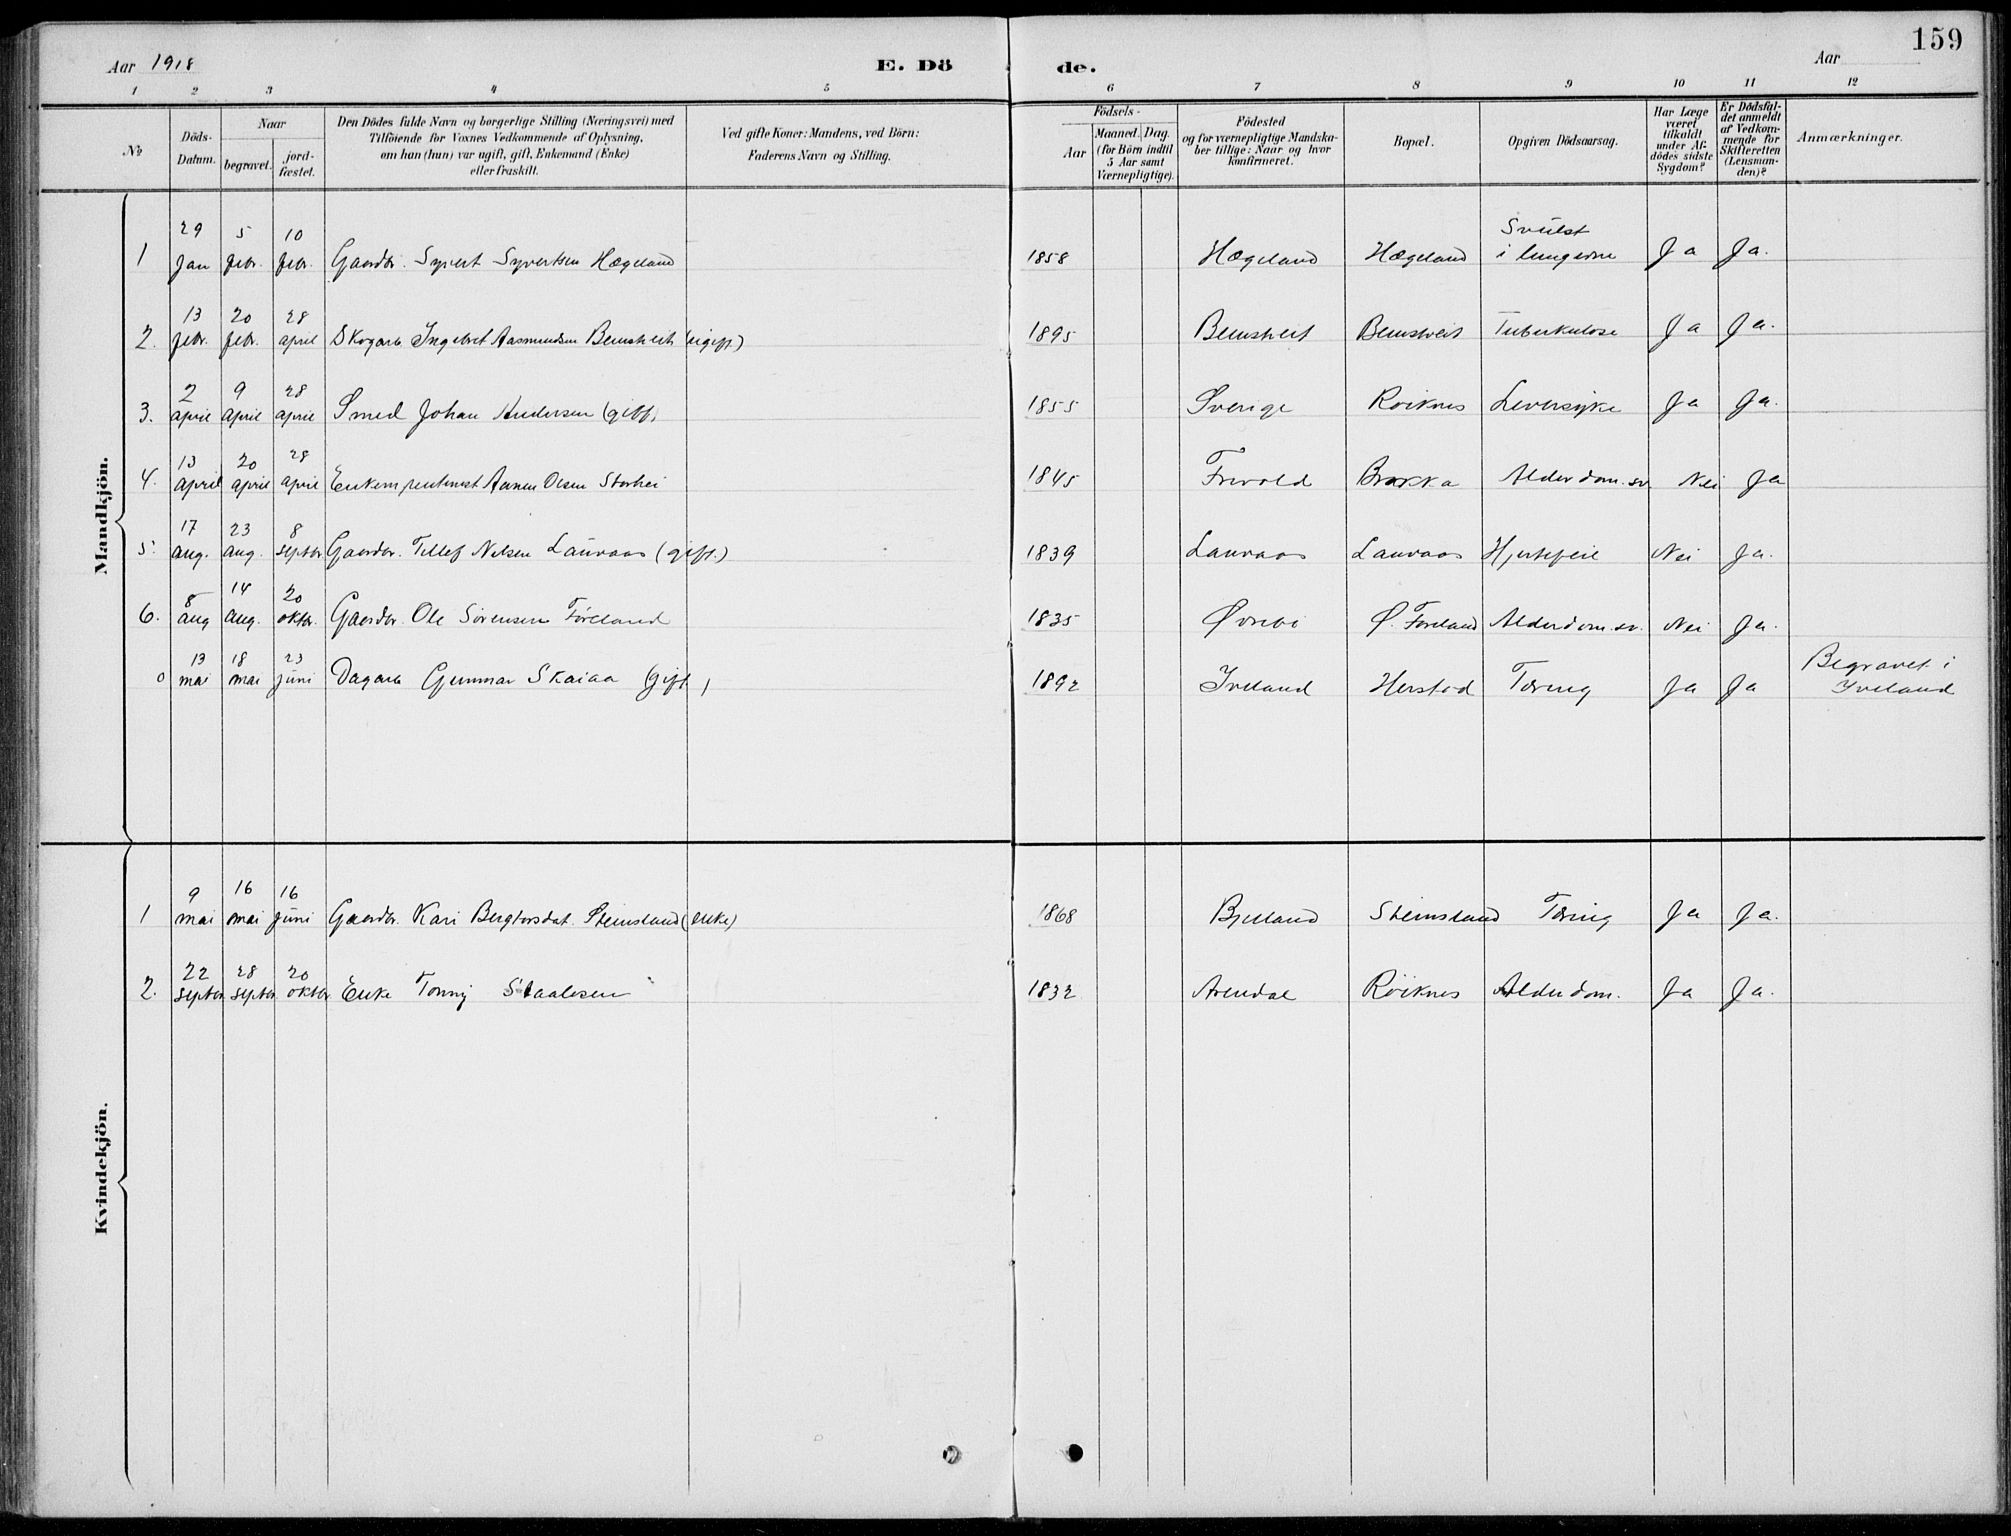 159
Aar 1918 E. Dö de. Aar
1 2 3 4 5 6 7 8 9 10 11 12
№
Döds-Datum.
Naar
begravet.
jord-fæstet.
Den Dödes fulde Navn og borgerlige Stilling (Næringsvei) med
Tilföiende for Voxnes Vedkommende af Oplysning,
om han (hun) var ugift, gift, Enkemand (Enke)
eller fraskilt.
Ved gifte Koner: Mandens, ved Börn:
Faderens Navn og Stilling.
Födsels-
Aar
Maaned. Dag.
(for Börn indtil
5 Aar samt
Værnepligtige).
Födested
og for værnepligtige Mandska-
ber tillige: Naar og hvor
konfirmeret.
Bopæl.
Opgiven Dödsaarsag.
Har Læge
været
tilkaldt
under Af-
dödes sidste
Sygdom?
Er Dödsfal-
det anmeldt
af Vedkom-
mende for
Skifteretten
(Lensman-
den)?
Anmærkninger.
Mandkjön.
1 29 Jan 5 febr. 10 febr. Gaardbr. Syvert Syvertsen Hægeland 1858 Hægeland Hægeland Svulst i lungerne Ja Ja.
2. 13 febr. 20 febr. 28 april Skogarb Ingebret Aasmundsen Bemstveit (ugift) 1895 Bemstveit Bemstveit Tuberkulose Ja Ja.
3. 2 april 9 april 28 april Smed Johan Andersen (gift) 1855 Sverige Röiknes Leversyke Ja Ja.
4. 13 april 20 april 28 april Enkem Aanen Olsen Storhei 1845 Frivold Brakka Alderdom.sv. Nei Ja
5. 17 aug. 23 aug. 8 septbr. Gaardbr. Tellef Nilsen Lauvaas (gift.) 1839 Lauvaas Lauvaas Hjertefeil Nei Ja.
6. 8 aug 14 aug. 20 oktbr. Gaardbr. Ole Sörensen Föreland 1835 Øvrebö Ø. Föreland Alderdom.sv. Nei Ja.
0 13 mai 18 mai 23 juni Dagarb Gunnar Skaiaa (gift) 1892 Iveland Herstad Tæring Ja Ja Begravet i Iveland
Kvindekjön.
1 9 mai 16 mai 16 juni Gaardbr. Kari Bergtorsdat. Steinsland (enke) 1868 Bjelland Steinsland Tæring Ja Ja.
2. 22 septbr. 28 septbr. 20 oktbr Enke Tonny Staalesen 1832 Arendal Röiknes Alderdom. Ja Ja.